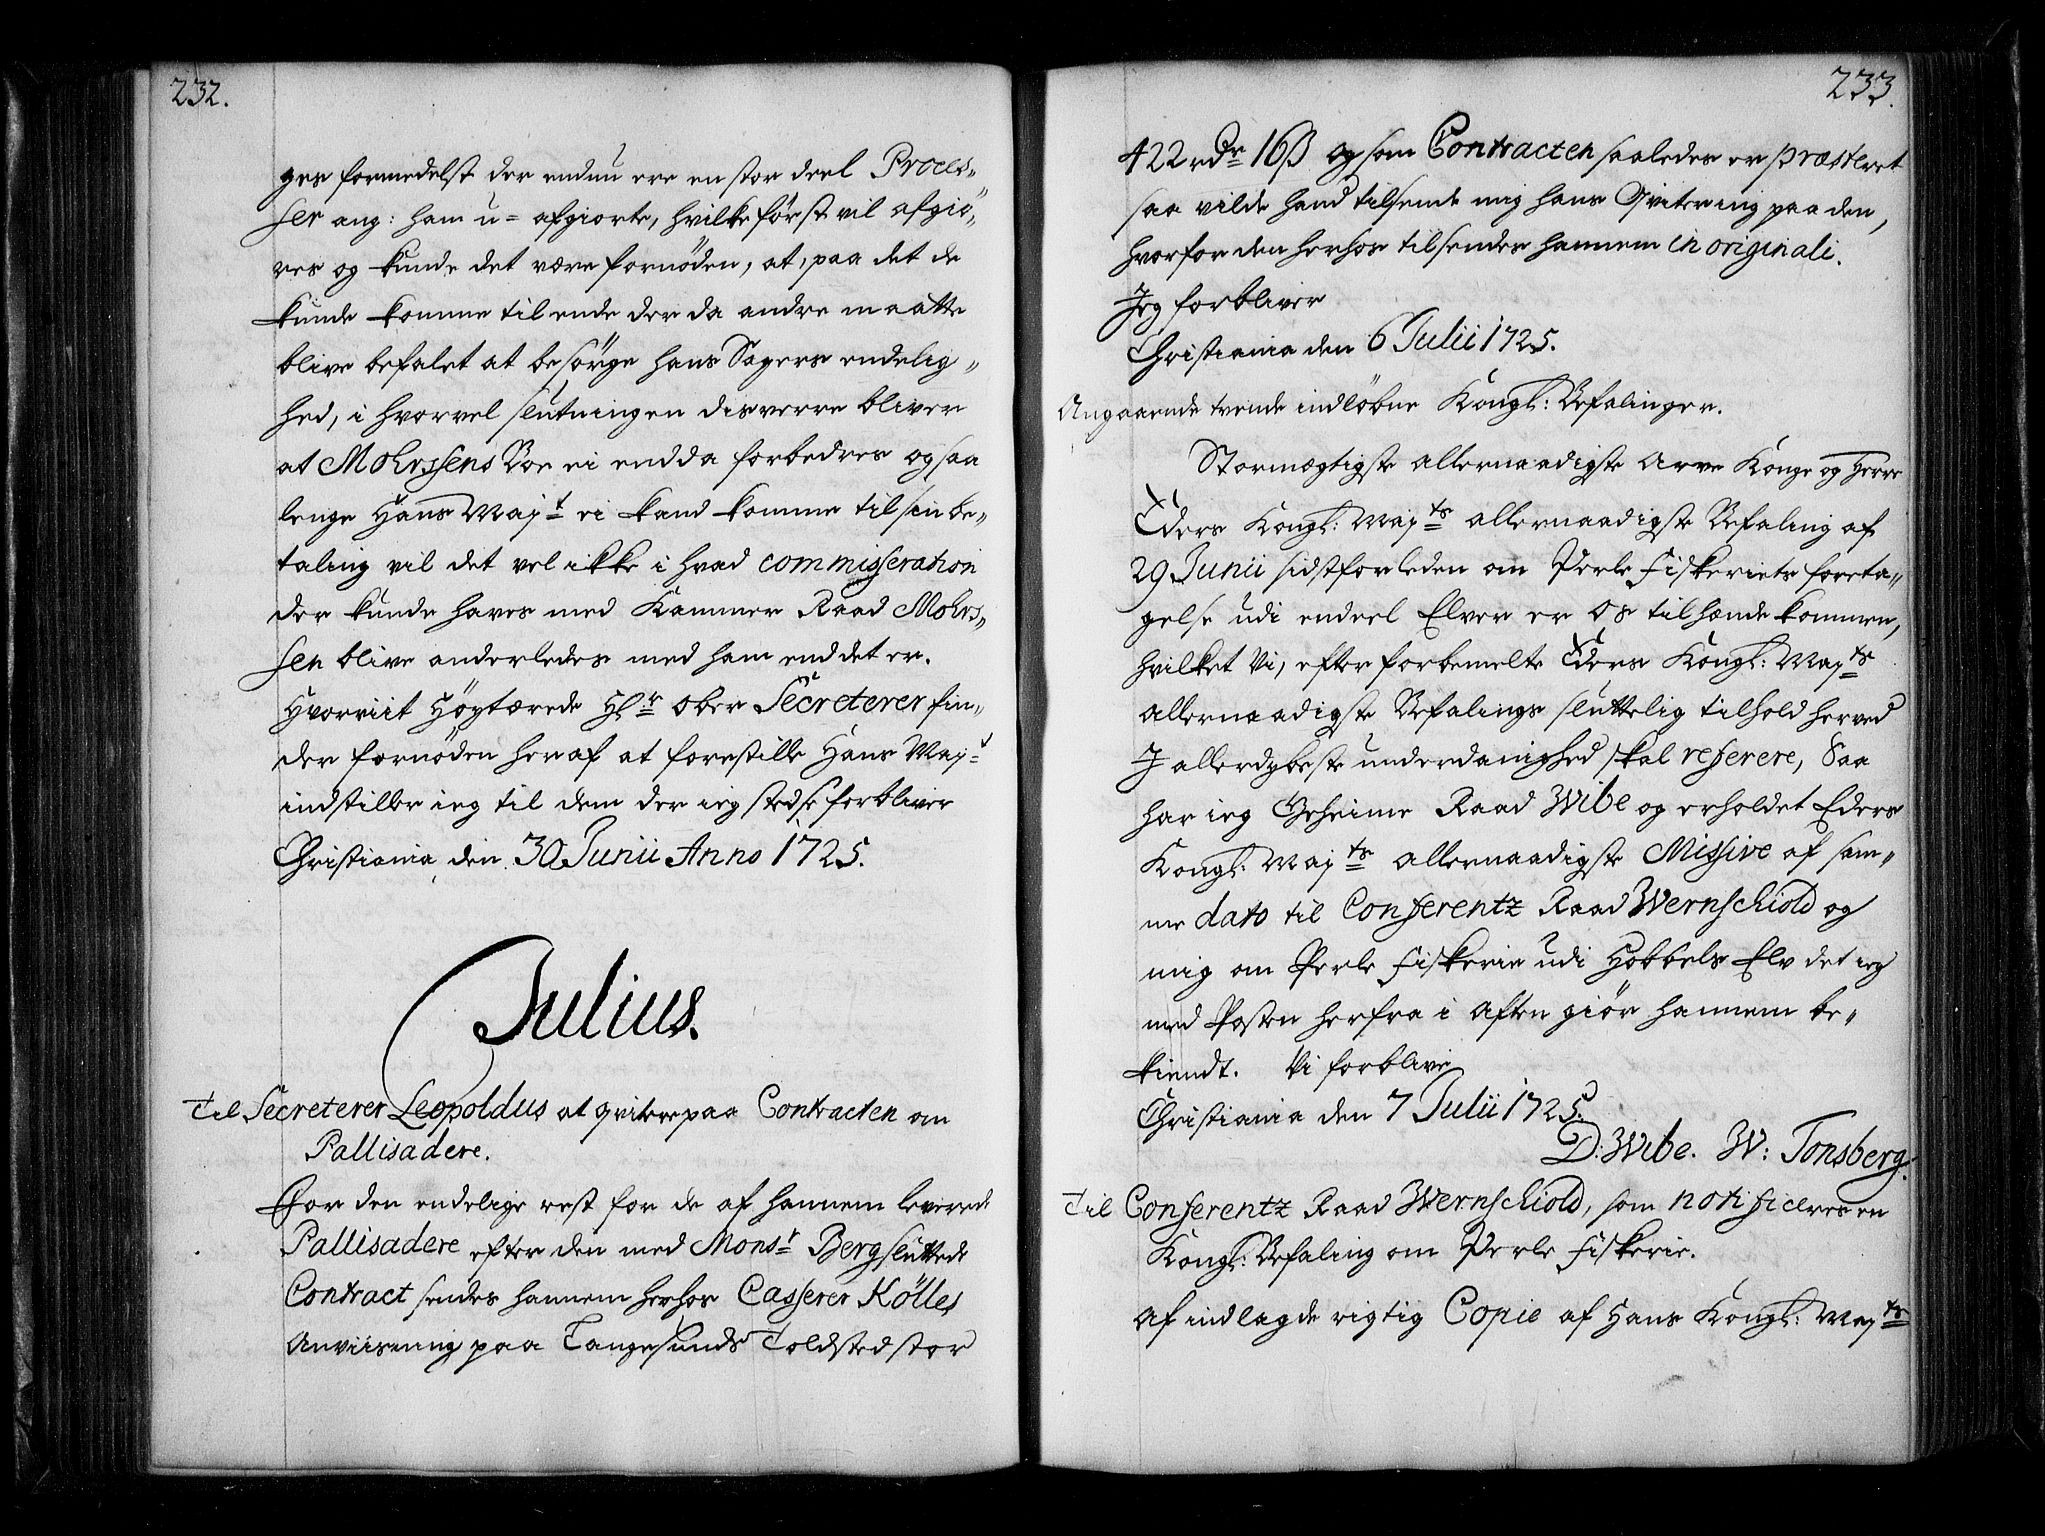 232.
ges formedelst der endnu ere en stor deel Proces-
ser ang: ham u=afgiorte, hvilke først vil afgiö-
res og kunde det være fornöden, at, paa det de
kunde komme til ende der da andre maatte
blive befalet at besörge hans Sagers endelig-
hed, i hvorvel slutningen disverre bliver
at Mohrssens Boe ei endda forbedres og saa
lenge Hans Majt ei kand komme til sin be-
taling vil det vel ikke i hvad commisseration
der kunde haves med Kammer Raad Mohrs-
sen blive anderledes med ham end det er.
Hvorviit Höytærede Hr Ober Secreterer fin-
der fornöden heraf at forestille Hans Majt
indstiller ieg til dem der ieg stedse forbliver
Christiania den 30 Junii Anno 1725.
Julius.
Til Secreterer Leopoldus at qvitere paa Contracten om
Pallisadere.
For den endelige rest for de af hannem leverede
Pallisadere efter den med Monsr Berg sluttede
Contract sendes hannem herhos Casserer Kölles
Anviisning paa Langesunds Toldsted stor
233.
422 rdr 16 β og som Contracten saaledes er præsteret
saa vilde hand tilsende mig hans Qvitering paa den,
hvorfor den herhos tilsendes hannem in originali.
Jeg forbliver
Christiania den 6 Julii 1725.
Angaaende tvende indlöbne Kongl: Befalinger.
Stormægtigste allernaadigste Arve Konge og Herre
Eders Kongl: Majts allernaadigste Befaling af
29 Junii sidstforleden om Perle Fiskeriets foreta-
gelse udi endeel Elver er os tilhænde kommen,
hvilket Vi, efter forbemelte Eders Kongl: Majts
allernaadigste Befalings sluttelig tilhold herved
I allerdybeste underdanighed skal referere, Saa
har ieg Geheime Raad Wibe og erholdet Eders
Kongl: Majts allernaadigste Missive af sam-
me dato til Conferentz Raad Wernschiold og
mig om Perle Fiskerie udi Hobbels Elv det ieg
med Posten herfra i Aften giör hannem be-
kiendt. Vi forblive
Christiania den 7 Julii 1725.
D: Wibe. W: Tonsberg.
Til Conferentz Raad Wernschiold, som notificeres en
Kongl: Befaling om Perle Fiskerie.
Af indlagde rigtig Copie af Hans Kongl: Majts